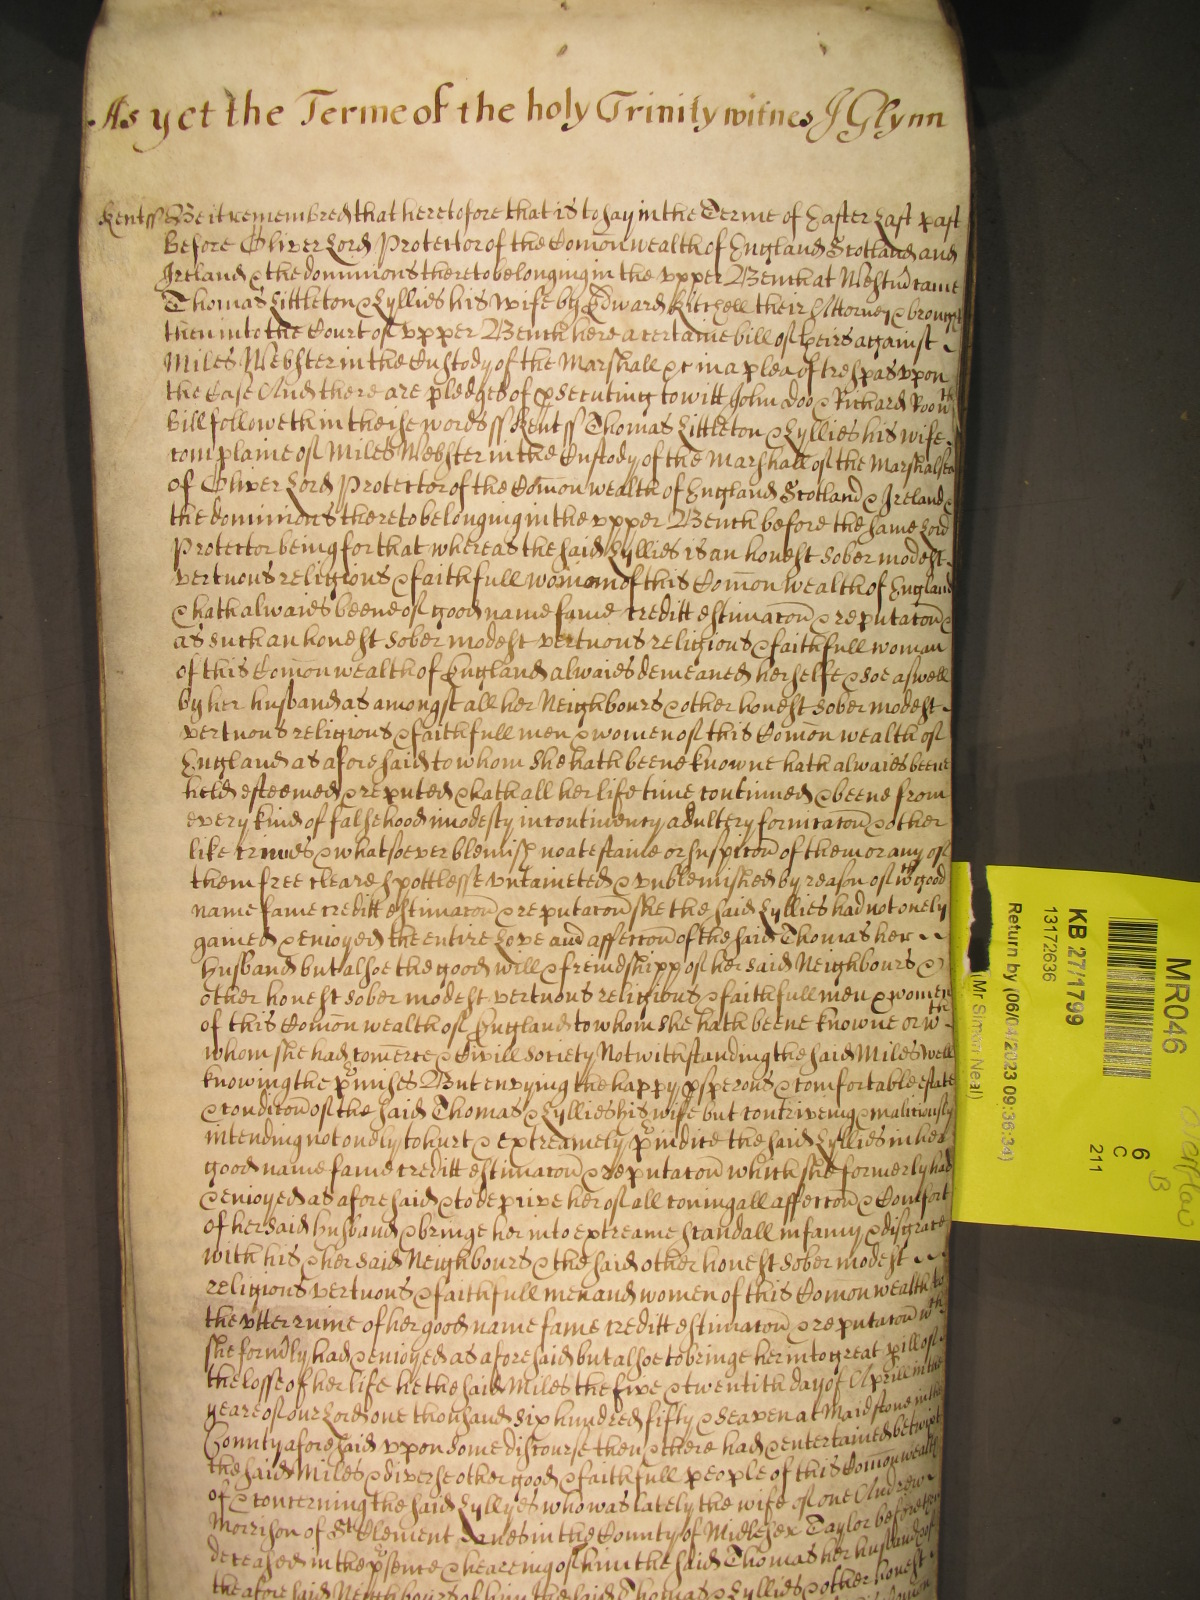 As yet the Terme of the holy Trinity witnes J Glynn
Kent ss Be it remembred that heretofore that is to say in the Terme of Easter Last past
Before Oliver Lord Protector of the Comonwealth of England Scotland and
Ireland & the dominions thereto belonging in the upper Bench at Westm̃ came
Thomas Littleton & Lyllies his wife by Edward Kitchell their Attorney & brought
then into the Court of upper Bench here a certaine bill of theirs against
Miles Webster in the Custody of the Marshall &c in a plea of trespas upon
the Case And there are pledges of psecuting to witt John doo & Richard Roo wch
Bill followeth in theise words ss Kent ss Thomas Littleton & Lyllies his wife
complaine of Miles Webster in the Custody of the Marshall of the Marshalsea
of Oliver Lord Protector of the Com̃on wealth of England Scotland & Ireland &
the dominions thereto belonging in the upper Bench before the same Lord
Protector being for that whereas the said Lyllies is an honest sober modest
vertuous religious & faithfull woman of this Com̃on wealth of England
& hath alwaies beene of good name fame creditt estimacon̄ & reputacon̄ &
as such an honest sober modest vertuous religious & faithfull woman
of this Com̃on wealth of England alwaies demeaned herselfe & soe aswell
by her husband as amongst all her Neighbours & other honest sober modest
vertuous religious & faithfull men & women of this Com̃on wealth of
England as aforesaid to whom she hath beene knowne hath alwaies beene
held esteemed & reputed & hath all her life time continued & beene from
every kind of falsehood imodesty incontinency adultery fornicacon̄ & other
like crimes & whatsoever blemish noate staine or suspicon̄ of them or any of
them free cleare spottlesse untainted & unblemished by reason of wch good
name fame creditt estimacon̄ & reputacon̄ she the said Lyllies had not onely
gained & enioyed the entire Love and affeccon̄ of the said Thomas her
husband but alsoe the good will & freindshipp of her said Neighbours &
other honest sober modest vertuous religious & faithfull men & women
of this Com̃on wealth of England to whom she hath beene knowne or wth
whom she had com̃erce & Civill society Notwithstanding the said Miles well
knowing the pmises But envying the happy psperous & comfortable estate
& condicon̄ of the said Thomas & Lyllies his wife but contriveing & malitiously
intending not onely to hurt & extreamely piudice the said Lyllies in her
good name fame creditt estimacon̄ & reputacon̄ which she formerly had
& enioyed as aforesaid & to deprive her of all coniugall affeccon̄ & Comfort
of her said husband & bringe her into extreame scandall infamy & disgrace
with his & her said Neighbours & the said other honest sober modest
religious vertuous & faithfull men and women of this Comon wealth to
the utter ruine of her good name fame creditt estimacon̄ & reputacon̄ wch
she form̃ly had & enioyed as aforesaid but alsoe to bringe her into great pill of
the losse of her life he the said Miles the five & twentith day of Aprill in the
yeare of our Lord one thousand six hundred fifty & seaven at Maidstone in the
County aforesaid upon some discourse then & there had & entertained betwixt
the said Miles & diverse other good & faithfull people of this Com̃onwealth
of & concerning the said Lyllyes who was lately the wife of one Andrew
Morrison of St Clement Danes in the County of Midlesex Taylor before
deceased in the psence & heareing of him the said Thomas her husband & of
the aforesaid Neighbours of him the said Thomas & Lyllies & other honest
MR046
6
C
211
KB 27/1799
13172636
Return by (06/04/2023 09:36:34)
(Mr Simon Neal)